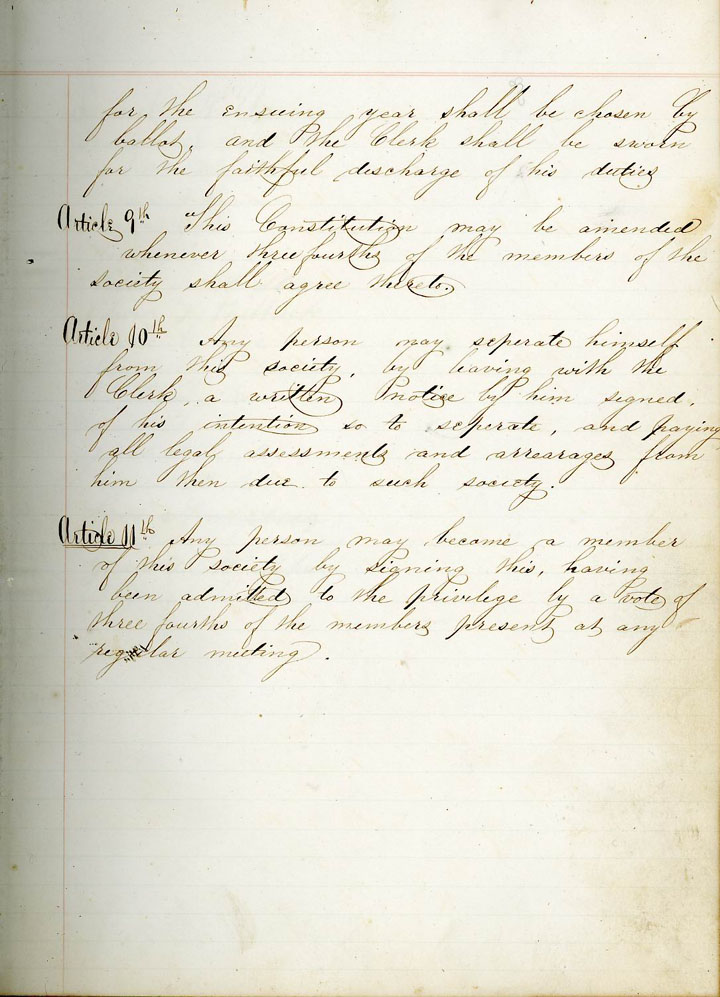 for the ensuing year shall be chosen by
ballot, and the Clerk shall be sworn
for the faithful discharge of his duties
Article 9th This Constitution may be amended
whenever three fourths of the members of the
society shall agree thereto.
Article 10th Any person may seperate himself
from this society, by leaving with the
Clerk, a written notice by him signed,
of his intention so to seperate, and paying
all legal assessments and arrearages from
him then due to such society.
Article 11th Any person may become a member
of this society by signing this, having
been admitted to the privilege by a vote of
three fourths of the members present at any
regular meeting.